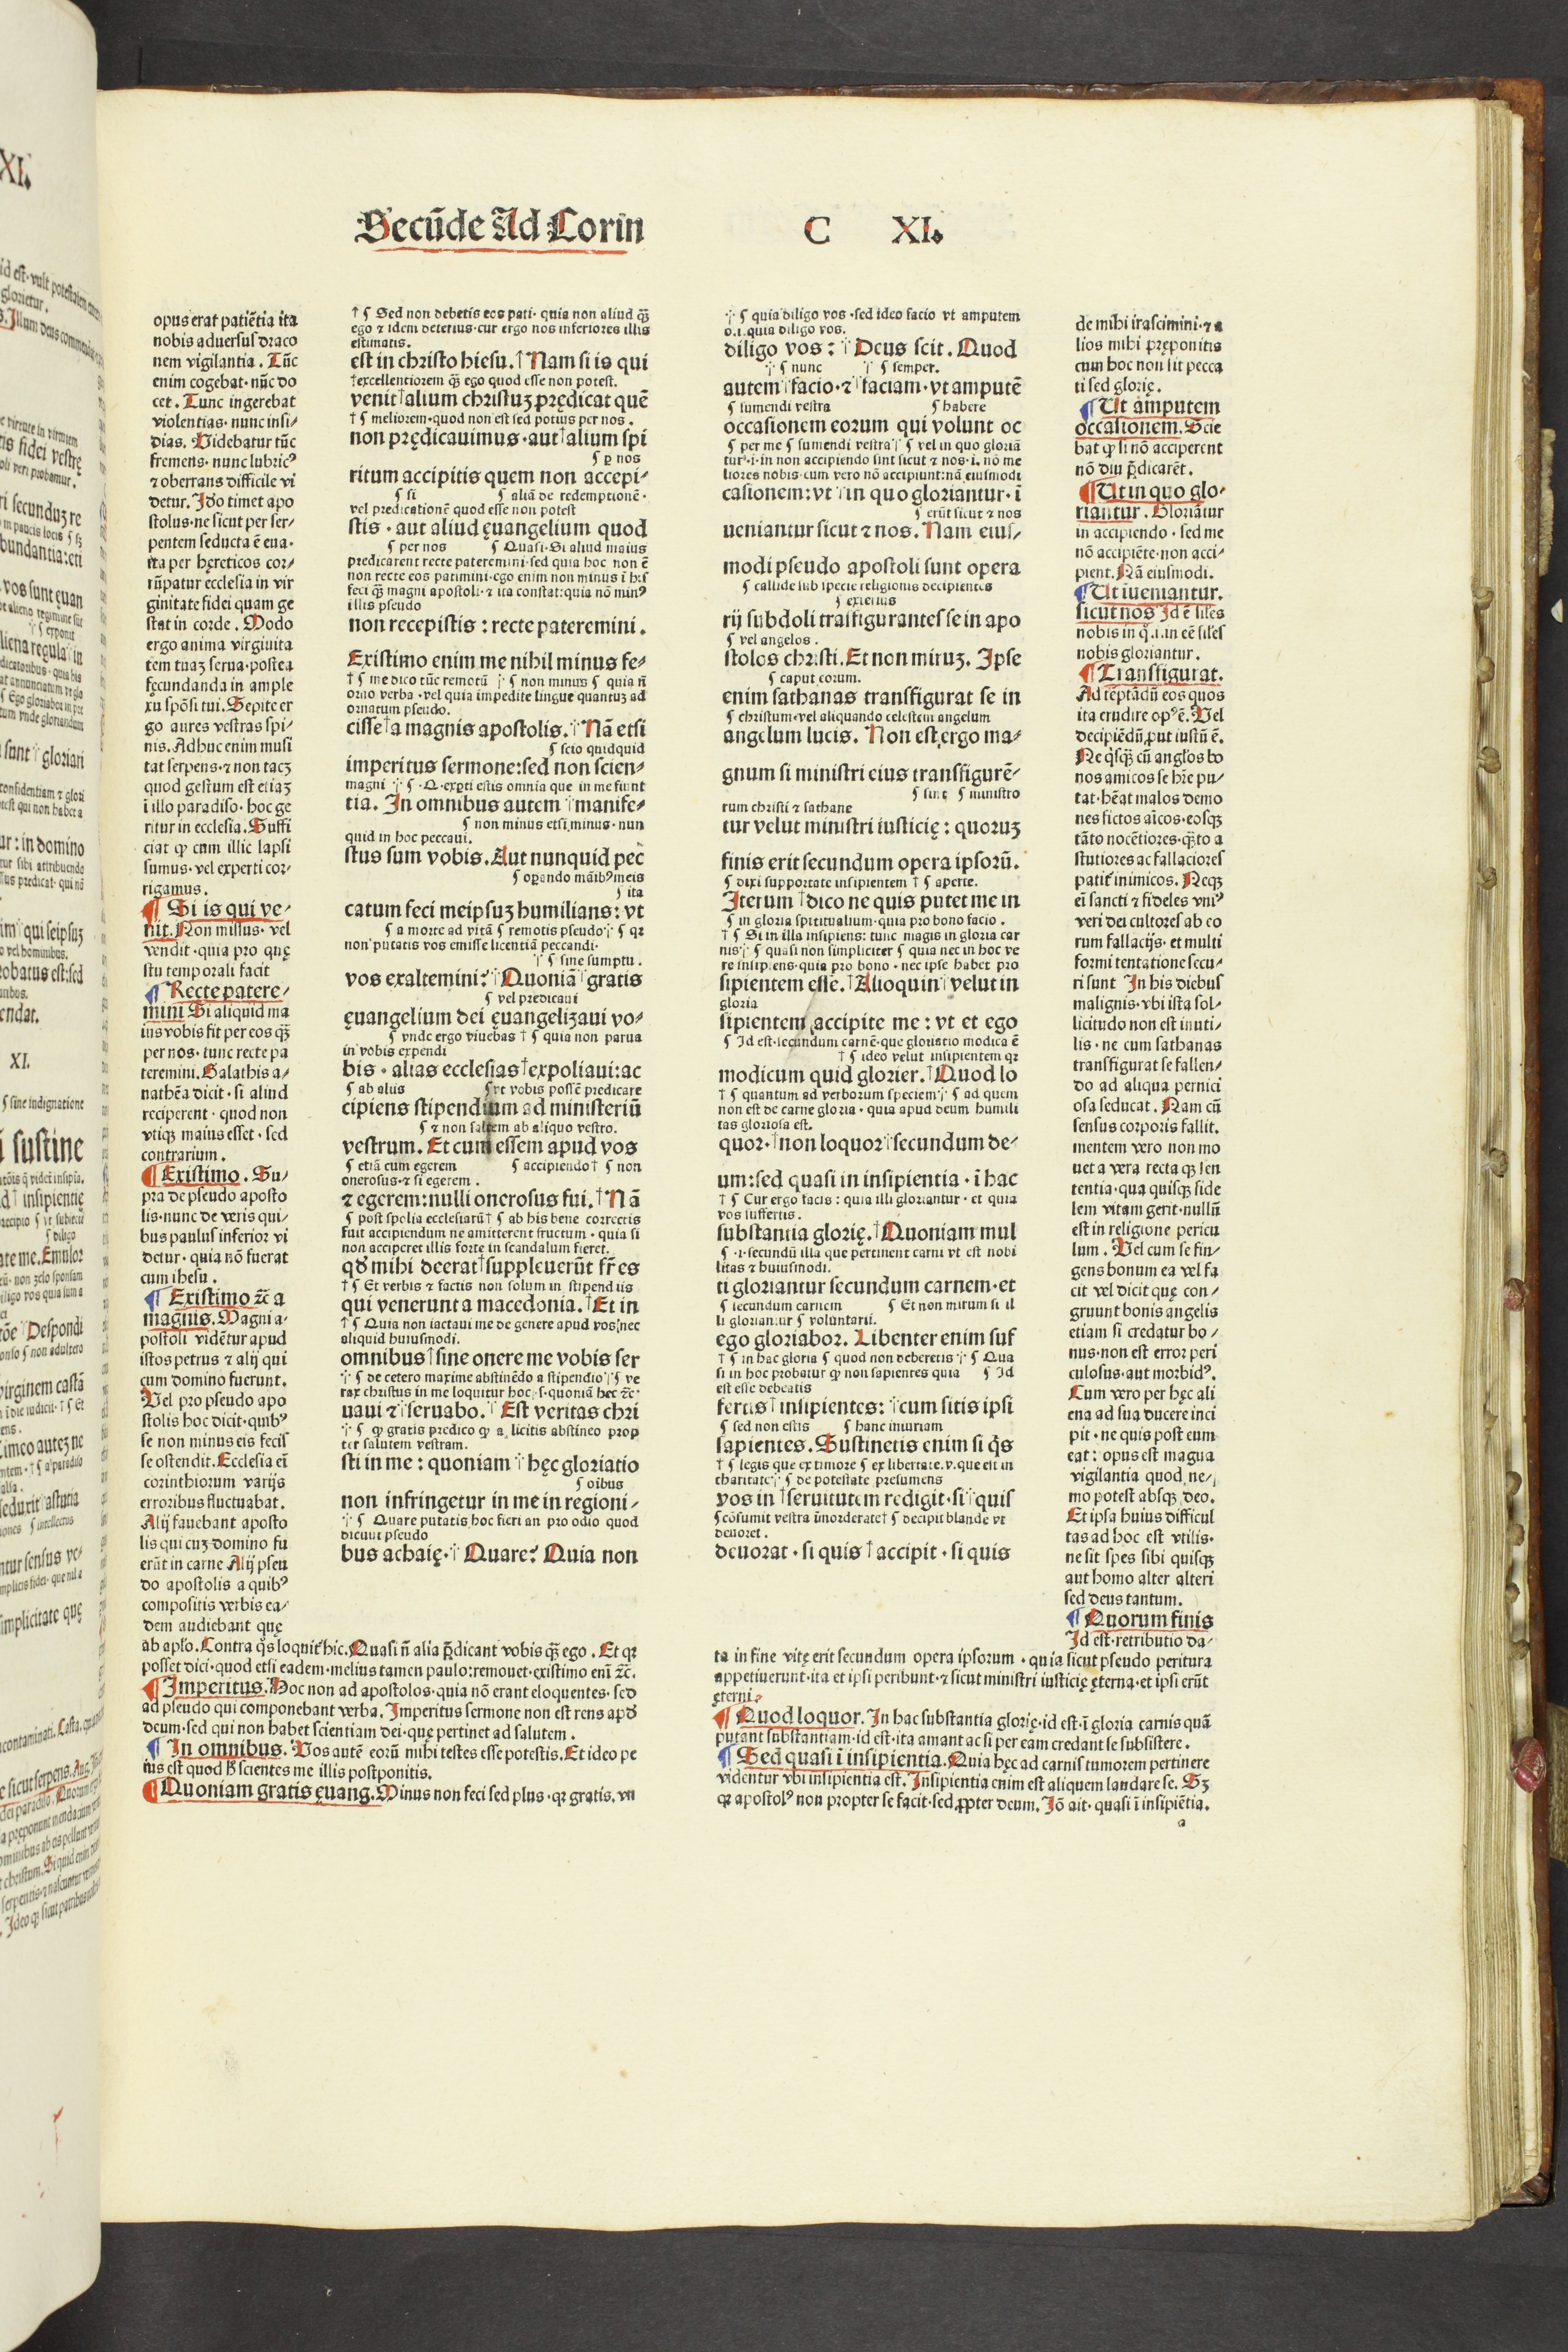 Secūde Ad Corin
C XI.
opus erat patiētia ita
nobis aduersus draco
nem vigilantia. Tūc
enim cogebat· nūc do
cet. Tunc ingerebat
violentias· nunc insi/
dias. Videbatur tūc
fremens· nunc lubricꝰ
⁊ oberrans difficile vi
detur. Ido timet apo
stolus· ne sicut per ser/
pentem seducta ē eua·
ita per hęreticos cor/
rūpatur ecclesia in vir
ginitate fidei quam ge
stat in corde. Modo
ergo anima virginita
tem tuaȝ serua· postea
fęcundanda in ample
xu spōsi tui. Sepite er
go aures vestras spi/
nis. Adhuc enim musi
tat serpens· ⁊ non tacȝ
quod gestum est etiaȝ
i illo paradiso· hoc ge
ritur in ecclesia. Suffi
ciat ꝙ cum illic lapsi
sumus· vel experti cor/
rigamus.
¶ Si is qui ve/
nit. Non missus· vel
vendit· quia pro quę
stu temporali facit
¶ Recte patere/
mini Si aliquid ma
ius vobis fit per eos qȝ̄
per nos· tunc recte pa
teremini. Galathis a/
nathēa dicit· si aliud
reciperent· quod non
vtiqȝ maius esset· sed
contrarium.
¶ Existimo. Su/
pra de pseudo aposto
lis· nunc de veris qui/
bus paulus inferior vi
detur· quia nō fuerat
cum ihesu.
¶ Existimo ⁊c̄ a
magnis. Magni a·
postoli vidētur apud
istos petrus ⁊ alij qui
cum domino fuerunt.
Vel pro pseudo apo
stolis hoc dicit· quibꝰ
se non minus eis fecis
se ostendit. Ecclesia ei
corinthiorum varijs
erroribus fluctuabat.
Alij fauebant aposto
lis qui cuȝ domino fu
erūt in carne Alij pseu
do apostolis a quibꝰ
compositis verbis ea/
dem audiebant quę
ab apło. Contra q̊s loquit̄ hic. Quasi n̄ alia p̄dicant vobis qȝ̄ ego. Et qꝛ
posset dici· quod etsi eadem· melius tamen paulo: remouet· existimo enī ⁊c̄.
¶ Imperitus. Hoc non ad apostolos· quia nō erant eloquentes· sed
ad pseudo qui componebant verba. Imperitus sermone non est rens apd̕
deum· sed qui non habet scientiam dei· quę pertinet ad salutem.
¶ In omnibus. Vos autē eorū mihi testes esse potestis. Et ideo pe
ius est quod h̕ scientes me illis postponitis.
¶ Quoniam gratis ęuang. Minus non feci sed plus· qꝛ gratis. vn
† ⸿ Sed non debetis eos pati· quia non aliud qȝ̄
ego ⁊ idem deterius· cur ergo nos inferiores illis
estimatis.
est in christo hiesu.† Nam si is qui
†excellentiorem qȝ̄ ego quod esse non potest.
venit†alium christuȝ prędicat quē
† ⸿ meliorem· quod non est sed potius per nos.
non prędicauimus· aut†alium spi
⸿ ꝑ nos
ritum accipitis quem non accepi/
⸿ si ⸿ aliā de redemptionē·
vel predicationē quod esse non potest
stis· aut aliud ęuangelium quod
⸿ per nos ⸿ Quasi· Si aliud maius
predicarent recte pateremini· sed quia hoc non ē
non recte eos patimini· ego enim non minus i his
feci qȝ̄ magni apostoli· ⁊ ita constat: quia nō minꝰ
illis pseudo
non recepistis: recte pateremini.
Existimo enim me nihil minus fe/
† ⸿ me dico tūc remotū ⸿ non minus ⸿ quia n̄
orno verba· vel quia impedite lingue quantuȝ ad
ornatum pseudo.
cisse†a magnis apostolis.† Nā etsi
⸿ scio quidquid
imperitus sermone: sed non scien/
magni ⸿ ·Q· exꝑti estis omnia que in me fiunt
tia. In omnibus autem†manife/
⸿ non minus etsi minus· nun
quid in hoc peccaui.
stus sum vobis. Aut nunquid pec
⸿ oꝑando māibꝰ meis
⸿ ita
catum feci meipsuȝ humilians: vt
⸿ a morte ad vitā ⸿ remotis pseudo ⸿ qꝛ
non putatis vos emisse licentiā peccandi·
⸿ sine sumptu.
vos exaltemini?† Quoniā†gratis
⸿ vel predicaui
ęuangelium dei ęuangelizaui vo/
⸿ vnde ergo viuebas † ⸿ quia non parua
in vobis expendi
bis· alias ecclesias†expoliaui: ac
⸿ ab aliis ⸿ vt vobis possē predicare
cipiens stipendium ad ministeriū
⸿ ⁊ non saltem ab aliquo vestro.
vestrum. Et cum essem apud vos
⸿ etiā cum egerem ⸿ accipiendo† ⸿ non
onerosus· ⁊ si egerem.
⁊ egerem: nulli onerosus fui.† Nā
⸿ post spolia ecclesiarū† ⸿ ab his bene correctis
fuit accipiendum ne amitterent fructum· quia si
non acciperet illis forte in scandalum fieret.
qd̕ mihi deerat†suppleuerūt fr̄es
† ⸿ Et verbis ⁊ factis non solum in stipendiis
qui venerunt a macedonia.† Et in
† ⸿ Quia non iactaui me de genere apud vos nec
aliquid huiusmodi.
omnibus†sine onere me vobis ser
⸿ de cetero maxime abstinēdo a stipendio ⸿ ve
rax christus in me loquitur hoc· s· quoniā hec ⁊c̄·
uaui ⁊†seruabo.† Est veritas chri
⸿ ꝙ gratis predico ꝙ a licitis abstineo prop
ter salutem vestram.
sti in me: quoniam†hęc gloriatio
⸿ oībus
non infringetur in me in regioni/
⸿ Quare putatis hoc fieri an pro odio quod
dicunt pseudo
bus achaię.† Quare? Quia non
⸿ quia diligo vos· sed ideo facio vt amputem
o.i. quia diligo vos.
diligo vos:† Deus scit. Quod
⸿ nunc ⸿ semper.
autem†facio· ⁊†faciam· vt amputē
⸿ sumendi vestra ⸿ habere
occasionem eorum qui volunt oc
⸿ per me ⸿ sumendi vestra ⸿ vel in quo gloriā
tur· i· in non accipiendo sint sicut ⁊ nos· i. nō me
liores nobis· cum vero nō accipiunt: nā eiusmodi
casionem: vt†in quo gloriantur· ī
⸿ erūt sicut ⁊ nos
ueniantur sicut ⁊ nos. Nam eius/
modi pseudo apostoli sunt opera
⸿ callide sub specie religionis decipientes
⸿ exterius
rij subdoli trāsfigurantes se in apo
⸿ vel angelos.
stolos christi. Et non miruȝ. Ipse
⸿ caput eorum.
enim sathanas transfigurat se in
⸿ christum· vel aliquando celestem angelum
angelum lucis. Non est ergo ma/
gnum si ministri eius transfigurē/
⸿ sint ⸿ ministro
rum christi ⁊ sathane
tur velut ministri iusticię: quoruȝ
finis erit secundum opera ipsorū.
⸿ dixi supportate insipientem † ⸿ aperte.
Iterum†dico ne quis putet me in
⸿ in gloria spiritualium· quia pro bono facio.
† ⸿ Si in illa insipiens: tunc magis in gloria car
nis ⸿ quasi non simpliciter ⸿ quia nec in hoc ve
re insipiens· quia pro bono· nec ipse habet pro
sipientem esse.† Alioquin†velut in
gloria
sipientem accipite me: vt et ego
⸿ Id est· secundum carnē· que gloriatio modica ē
† ⸿ ideo velut insipientem qꝛ
modicum quid glorier.† Quod lo
† ⸿ quantum ad verborum speciem ⸿ ad quem
non est de carne gloria· quia apud deum humili
tas gloriosa est.
quor·†non loquor†secundum de/
um: sed quasi in insipientia· ī hac
† ⸿ Cur ergo facis: quia illi gloriantur· et quia
vos suffertis.
substantia glorię.† Quoniam mul
⸿ ·i· secundū illa que pertinent carni vt est nobi
litas ⁊ huiusmodi.
ti gloriantur secundum carnem· et
⸿ secundum carnem ⸿ Et non mirum si il
li gloriantur ⸿ voluntarii.
ego gloriabor. Libenter enim suf
† ⸿ in hac gloria ⸿ quod non deberetis ⸿ Qua
si in hoc probatur ꝙ non sapientes quia ⸿ Id
est esse debeatis
fertis†insipientes:†cum sitis ipsi
⸿ sed non estis ⸿ hanc iniuriam
sapientes. Sustinetis enim si q̊s
† ⸿ legis que ex timore ⸿ ex libertate. v. que est in
charitate ⸿ de potestate presumens
vos in†seruitutem redigit· si†quis
⸿ cōsumit vestra īmorderate† ⸿ decipit blande vt
deuoret.
deuorat· si quis†accipit· si quis
de mihi irascimini· ⁊ a
lios mihi pręponitis
cum hoc non sit pecca
ti sed glorię.
¶ Ut amputem
occasionem. Scie
bat ꝙ si nō acciperent
nō diu p̄dicarēt.
¶ Ut in quo glo·
riantur. Gloriātur
in accipiendo· sed me
nō accipiēte· non acci/
pient. Nā eiusmodi.
¶ Ut iueniantur.
sicut nos Id ē siłes
nobis in q̊ .i. in eē siłes
nobis gloriantur.
¶ Transfigurat.
Ad tēptādū eos quos
ita erudire opꝰ ē. Vel
decipiēdū ꝓut iustū ē.
Ne q̊sqȝ cū angl̄os bo
nos amicos se hr̄e pu/
tat· hēat malos demo
nes fictos aīcos· eosqȝ
tāto nocētiores· qȝ̄to a
stutiores ac fallaciores
patit̄ inimicos. Neqȝ
ei sancti ⁊ fideles vniꝰ
veri dei cultores ab eo
rum fallacijs· et multi
formi tentatione secu/
ri sunt In his diebus
malignis· vbi ista sol/
licitudo non est inuti/
lis· ne cum sathanas
transfigurat se fallen/
do ad aliqua pernici
osa seducat. Nam cū
sensus corporis fallit.
mentem vero non mo
uet a vera recta qȝ sen
tentia· qua quisqȝ fide
lem vitam gerit· nullū
est in religione pericu
lum. Vel cum se fin/
gens bonum ea vel fa
cit vel dicit quę con/
gruunt bonis angelis
etiam si credatur bo/
nus· non est error peri
culosus· aut morbidꝰ.
Cum vero per hęc ali
ena ad sua ducere inci
pit· ne quis post eum
eat: opus est magna
vigilantia quod ne/
mo potest absqȝ deo.
Et ipsa huius difficul
tas ad hoc est vtilis·
ne sit spes sibi quisqȝ
aut homo alter alteri
sed deus tantum.
¶ Quorum finis
Id est· retributio da/
ta in fine vitę erit secundum opera ipsorum· quia sicut pseudo peritura
appetiuerunt· ita et ipsi peribunt· ⁊ sicut ministri iusticię ęterna· et ipsi erūt
ęterni.
¶ Quod loquor. In hac substantia glorię· id est· ī gloria carnis quā
putant substantiam· id est· ita amant ac si per eam credant se subsistere.
¶ Sed quasi ī insipientia. Quia hęc ad carnis tumorem pertinere
videntur vbi insipientia est. Insipientia enim est aliquem laudare se. Sȝ
qꝛ apostolꝰ non propter se facit· sed ꝓpter deum. Iō ait· quasi ī insipiētia.
a